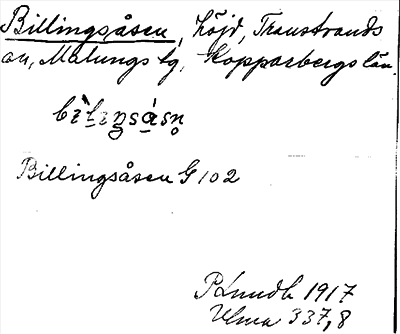 Billingsåsen, höjd, Transtrands
sn, Malungs tg, Kopparbergs län.
Billingsåsen G 102
P Lundh 1917
Ulma 337,8